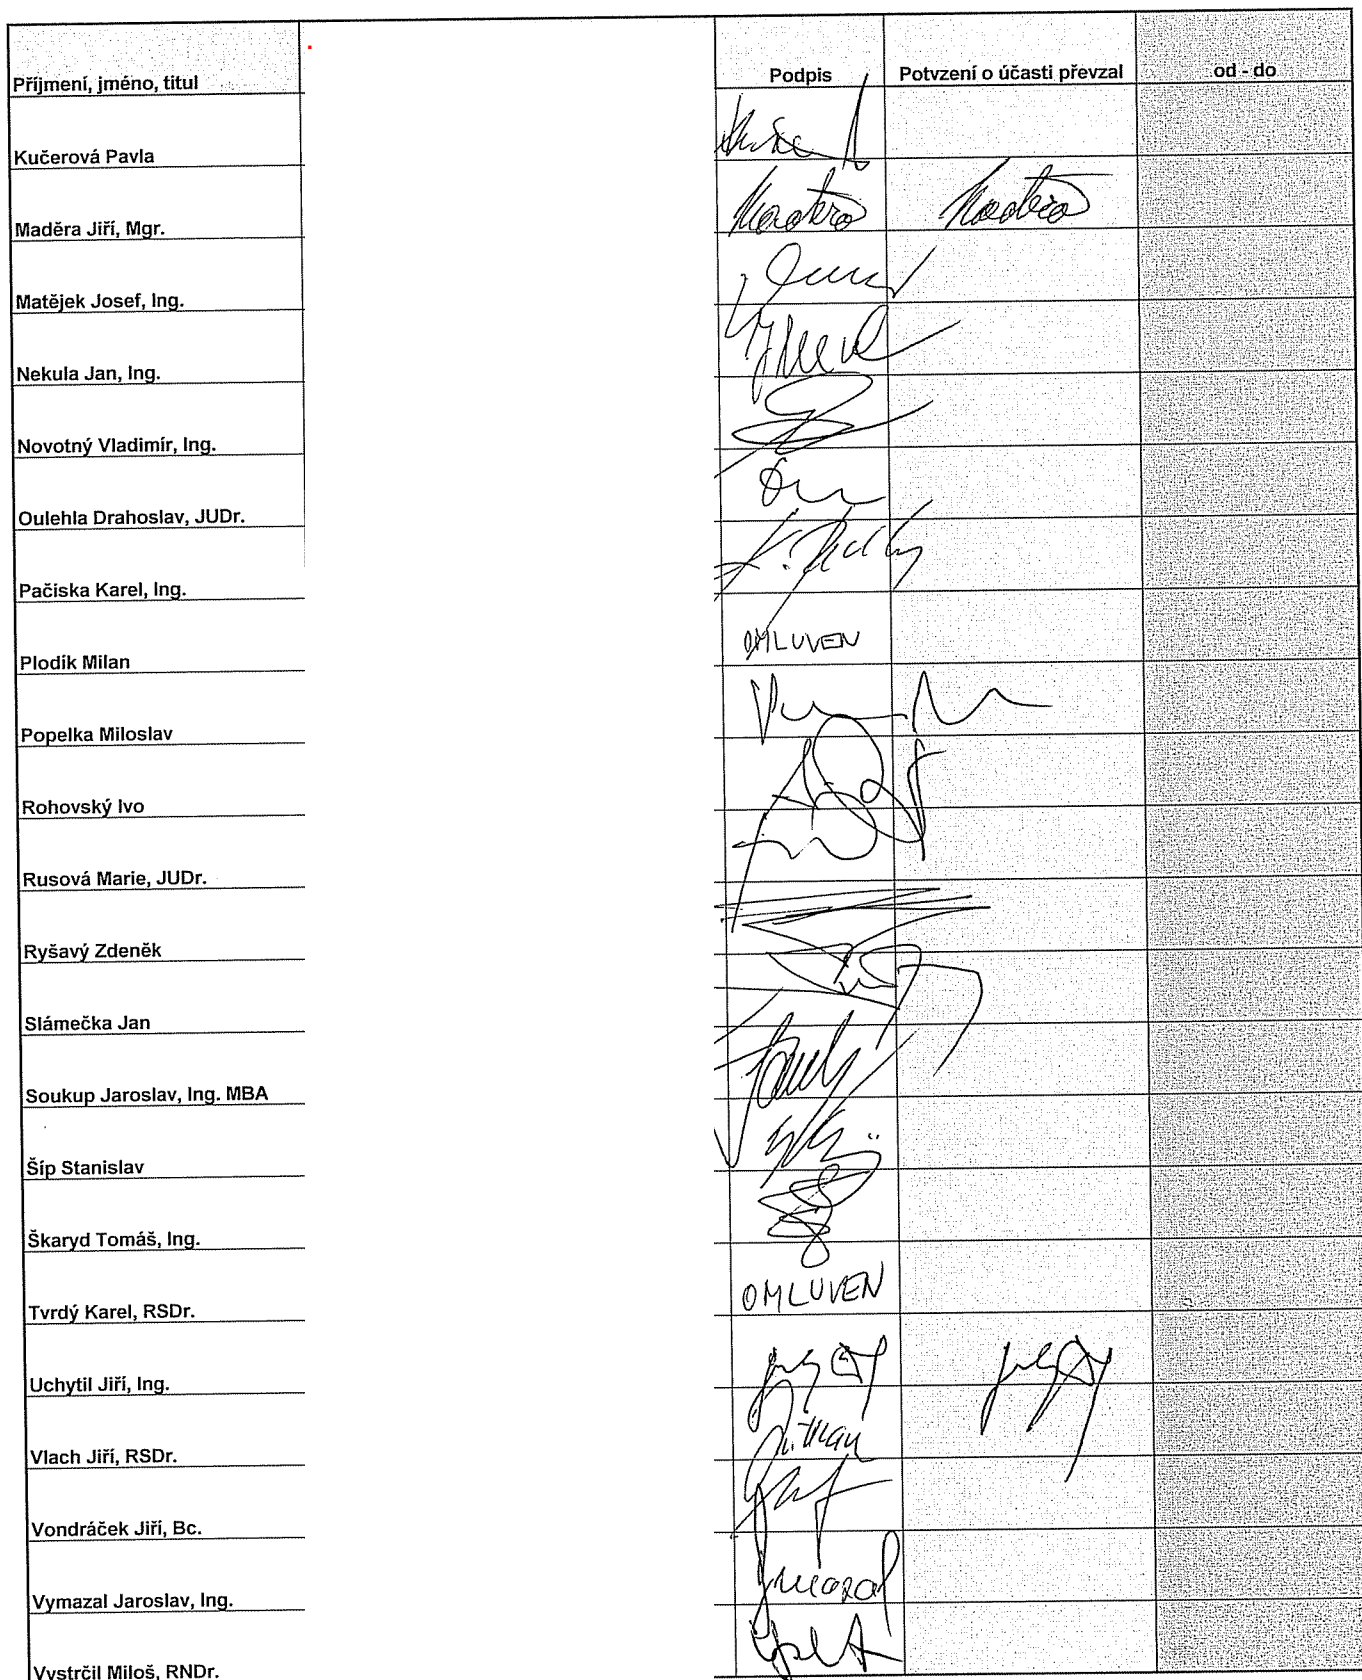 Příjmení, jméno, titul Podpis Potvzení o účasti převzal od - do
Kučerová Pavla
Maděra Jiří, Mgr. Maděra Maděra
Matějek Josef, Ing.
Nekula Jan, Ing.
Novotný Vladimír, Ing.
Oulehla Drahoslav, JUDr.
Pačiska Karel, Ing.
Plodík Milan OMLUVEN
Popelka Miloslav
Rohovský Ivo
Rusová Marie, JUDr.
Ryšavý Zdeněk
Slámečka Jan
Soukup Jaroslav, Ing. MBA
Šíp Stanislav
Škaryd Tomáš, Ing.
Tvrdý Karel, RSDr. OMLUVEN
Uchytil Jiří, Ing.
Vlach Jiří, RSDr.
Vondráček Jiří, Bc.
Vymazal Jaroslav, Ing.
Vystrčil Miloš, RNDr.